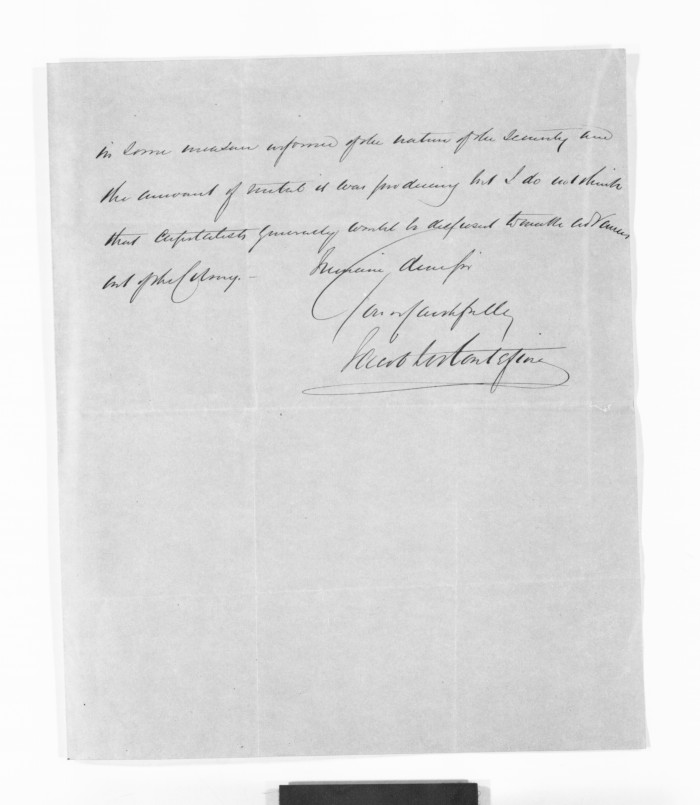 in some measure informed of the nature of the Security and
the amount of metal it was producing but I do not think
that Capitalists generally would be disposed to make advances
out of the Colony. —
I remain dear Sir
Yours faithfully
Jacob Montefiore